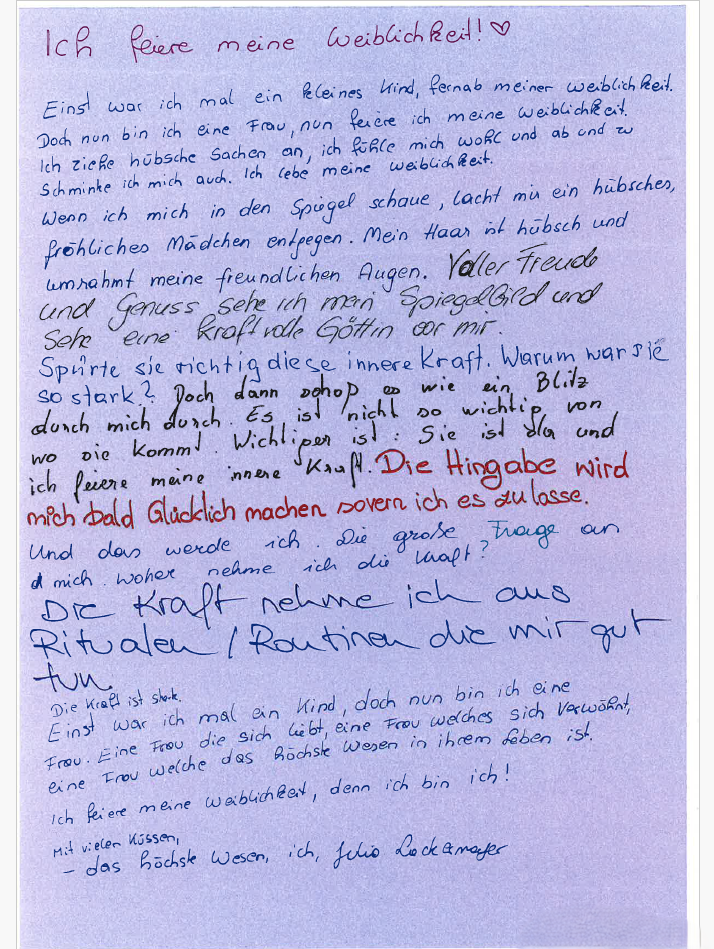 Ich feiere meine Weiblichkeit! ♡
Einst war ich mal ein kleines Kind, fernab meiner Weiblichkeit.
Doch nun bin ich eine Frau, nun feiere ich meine Weiblichkeit.
Ich ziehe hübsche Sachen an, ich fühle mich wohl und ab und zu
Schminke ich mich auch. Ich lebe meine Weiblichkeit.
Wenn ich mich in den Spiegel schaue, lacht mir ein hübsches,
fröhliches Mädchen entgegen. Mein Haar ist hübsch und
umrahmt meine freundlichen Augen. Voller Freude
und Genuss sehe ich mein Spiegelbild und
sehe eine kraftvolle Göttin vor mir.
Spürte sie richtig diese innere Kraft. Warum war sie
so stark? Doch dann schoß es wie ein Blitz
durch mich durch. Es ist nicht so wichtig von
wo sie kommt. Wichtiger ist: Sie ist da und
ich feiere meine innere Kraft. Die Hingabe wird
mich bald Glücklich machen sovern ich es zu lasse.
Und das werde ich. Die große Frage an
mich. Woher nehme ich die Kraft?
Die Kraft nehme ich aus
Ritualen / Routinen die mir gut
tun.
Die Kraft ist stark.
Einst war ich mal ein Kind, doch nun bin ich eine
Frau. Eine Frau die sich liebt, eine Frau welches sich verwöhnt,
eine Frau welche das höchste Wesen in ihrem Leben ist.
Ich feiere meine Weiblichkeit, denn ich bin ich!
Mit vielen Küssen,
– das höchste Wesen, ich,